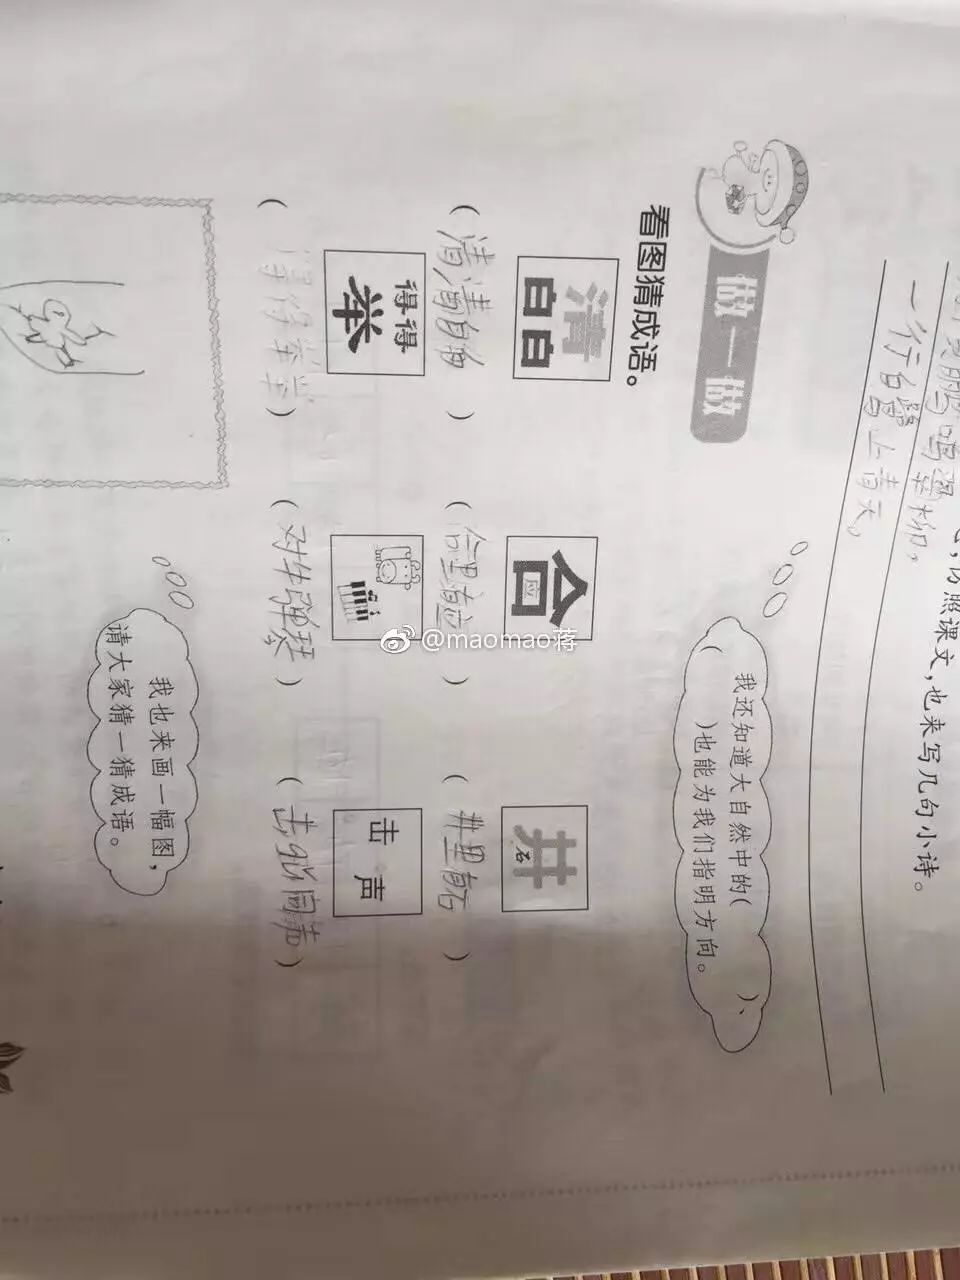 仿照课文，也来写几句小诗。
鹂鸣翠柳，
一行白鹭上青天。
我还知道大自然中的(　　)、
(　　)也能为我们指明方向。
做一做
看图猜成语。
清
白白
合
应
井
石
(清清白白)
(合里有应)
(井里有石)
得得
举
击 声
(得得举举)
(对牛弹琴)
我也来画一幅图，
请大家猜一猜成语。
@maomao蒋